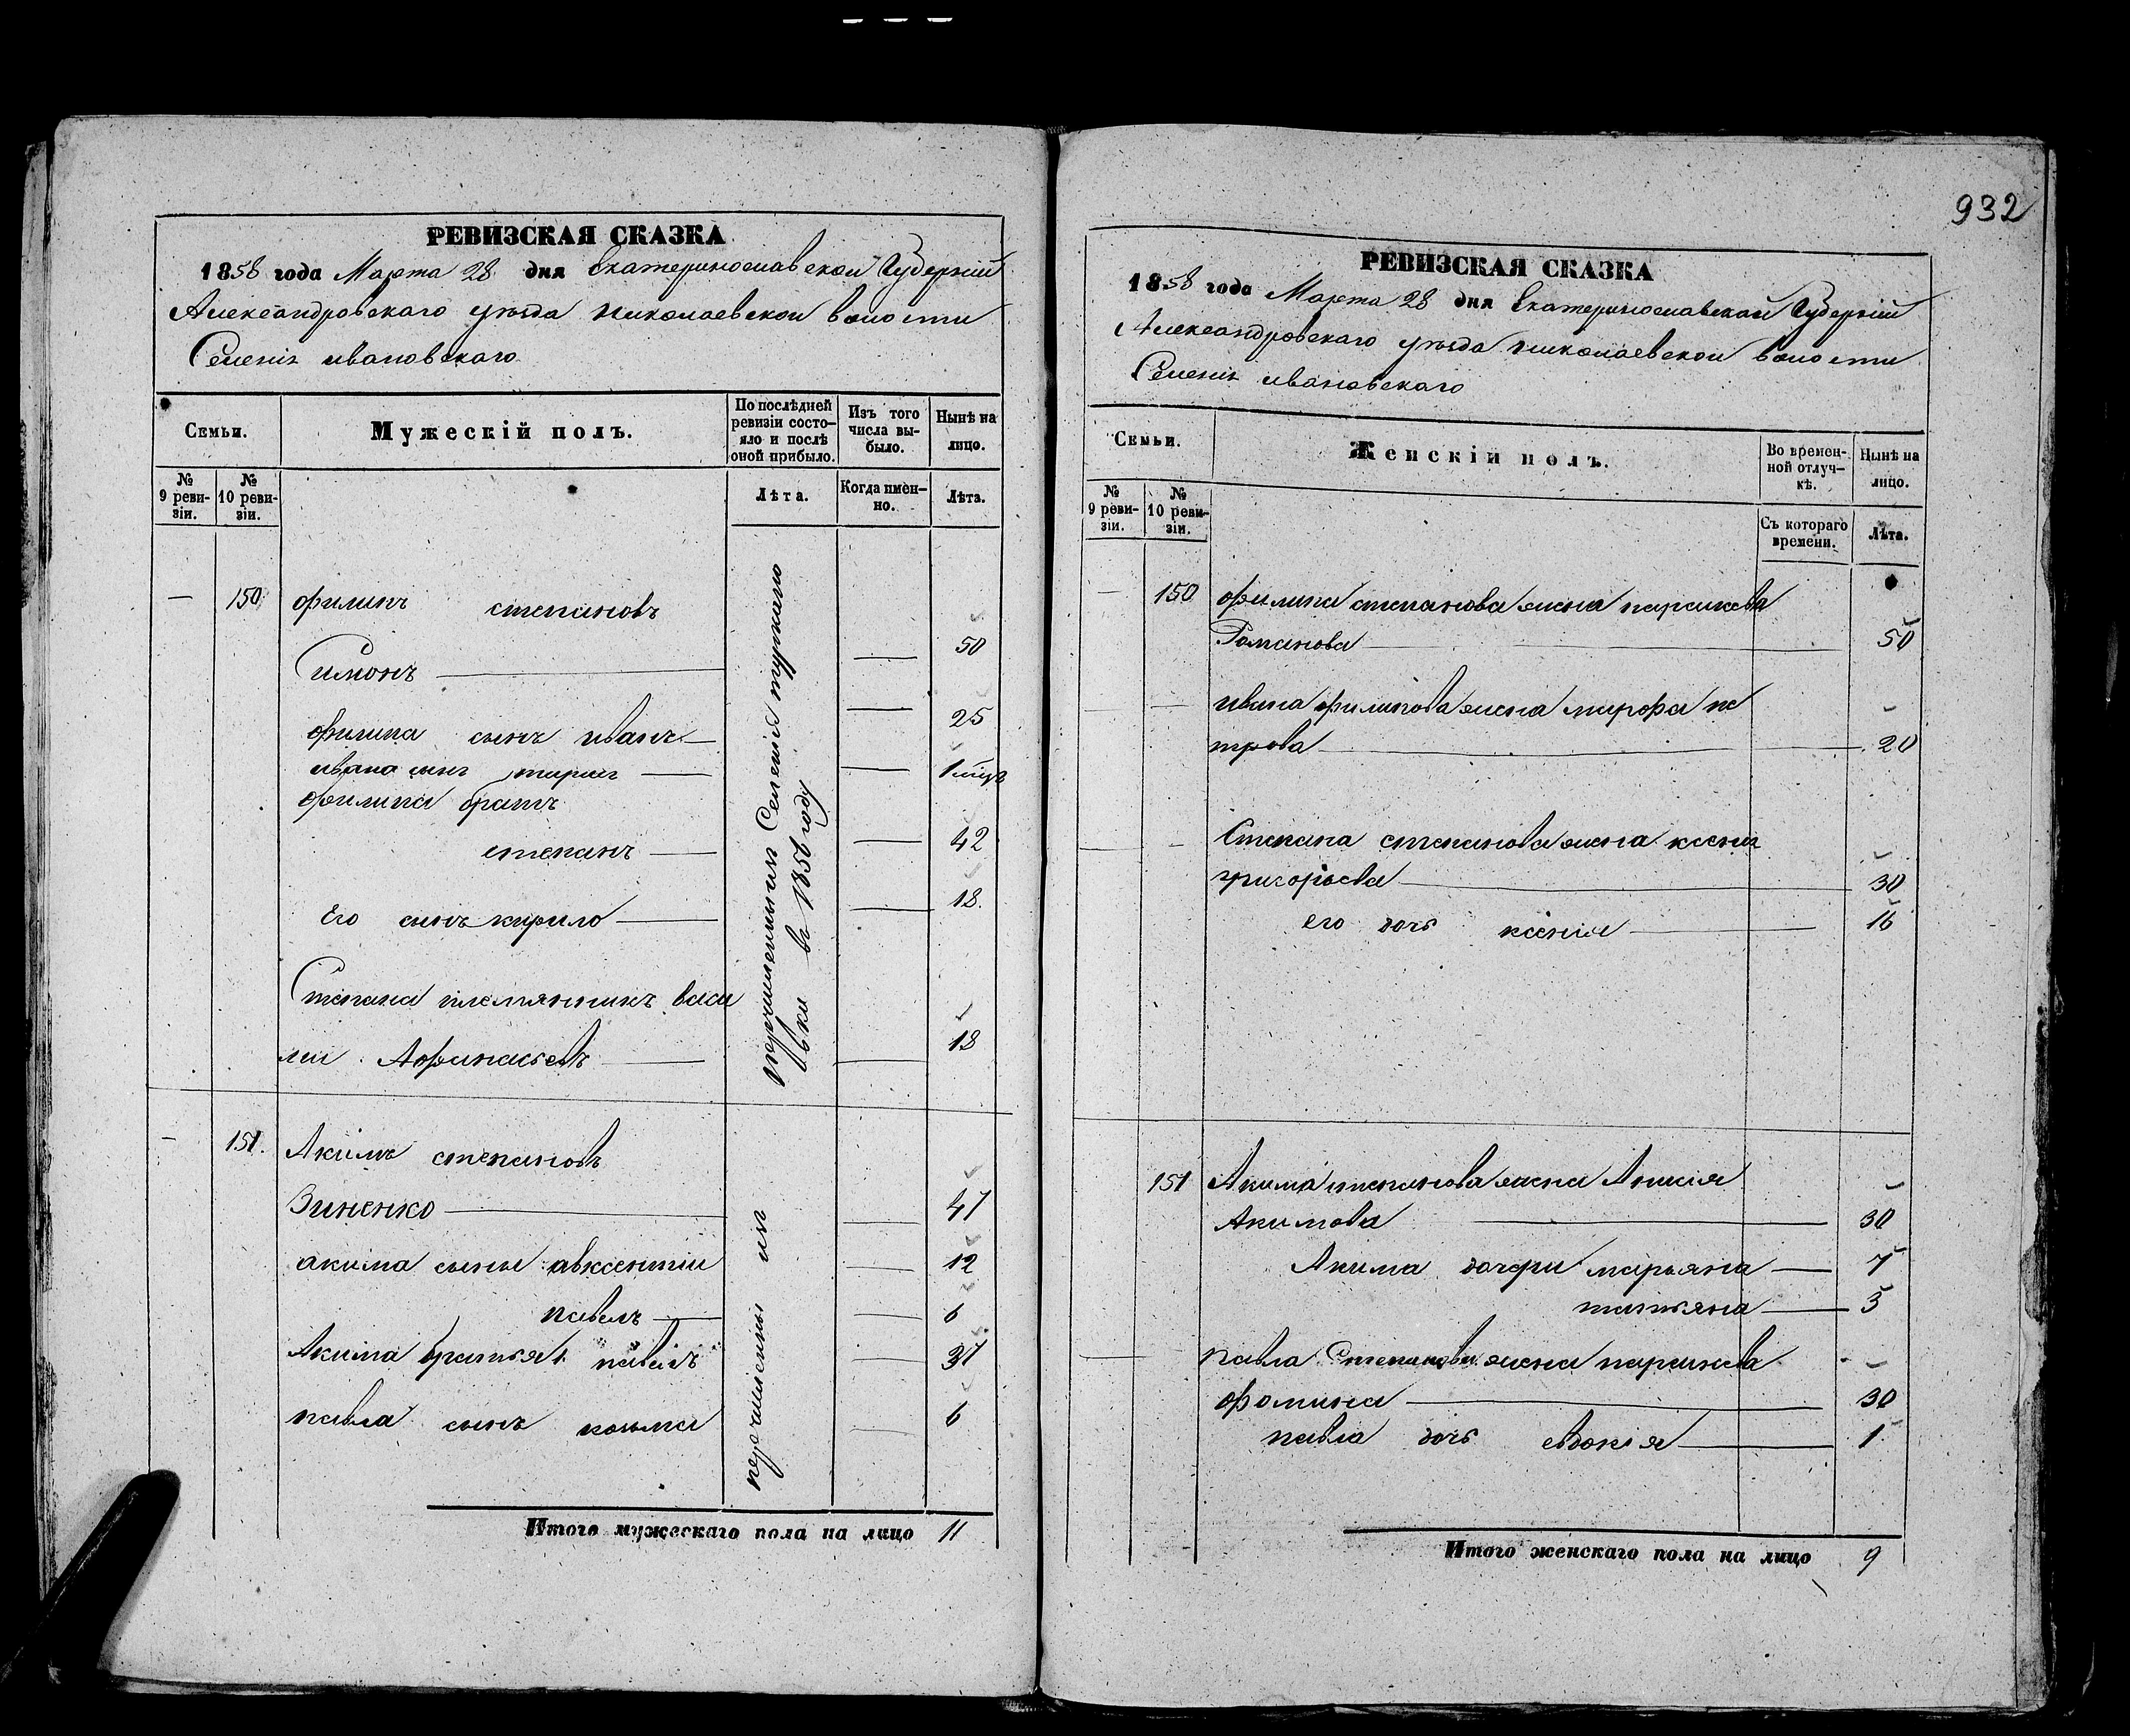 РЕВИЗСКАЯ СКАЗКА
1858 года Марта 28 дня Екатеринославской Губерніи
Александровскаго уѣзда николаевской волости
Селенія ивановскаго
Семьи.
Мужескій полъ.
По послѣдней ревизіи состо-
яло и послѣ оной прибыло.
Изъ того числа вы-
было.
Нынѣ на лицо.
№ 9 реви-
зіи.
№ 10 реви-
зіи.
Лѣта.
Когда имен-
но.
Лѣта.
— 150 филипъ степановъ
Симонъ — 50
филипа сынъ иванъ — 25
ивана сынъ — 1
филипа братъ
степанъ — 42
Его сынъ кирило — 18.
Степана племянникъ васи
лій Афанасьевъ — 18
перечисленны изъ Селенія туркано
вки въ 1856 году
— 151. Акимъ степановъ
Зиненко — 47
акима сыны авксентіи — 12
павелъ — 6
Акима братья 1. павелъ — 37
павла сынъ козьма — 6
перечислены изъ
Итого мужескаго пола на лицо 11
932
РЕВИЗСКАЯ СКАЗКА
1858 года Марта 28 дня Екатеринославской Губерніи
Александровскаго уѣзда николаевской волости
Селенія ивановскаго
Семьи.
Женскій полъ.
Во времен-
ной отлуч-
кѣ.
Нынѣ на лицо.
№ 9 реви-
зіи.
№ 10 реви-
зіи.
Съ котораго времени.
Лѣта.
— 150 филипа степанова жена параскева
Романова — 50
ивана филипова жена марфа пе
трова — 20
Степана степанова жена ксенія
григорьева — 30
его дочь ксенія — 16
151 Акима степанова жена
Акимова — 30
Акима дочери марьяна — 7
татьяна — 5
павла Степанова жена параскева
фомина — 30
павла дочь евдокія — 1
Итого женскаго пола на лицо 9